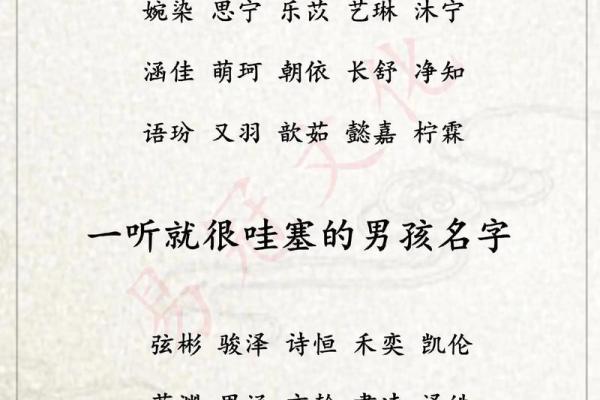 婉染 思宁 乐苡 艺琳 沐宁
涵佳 萌珂 朝依 长舒 净知
语玢 又羽 歆茹 懿嘉 柠霖
一听就很哇塞的男孩名字
弦彬 骏泽 诗恒 禾奕 凯伦
易冠文化